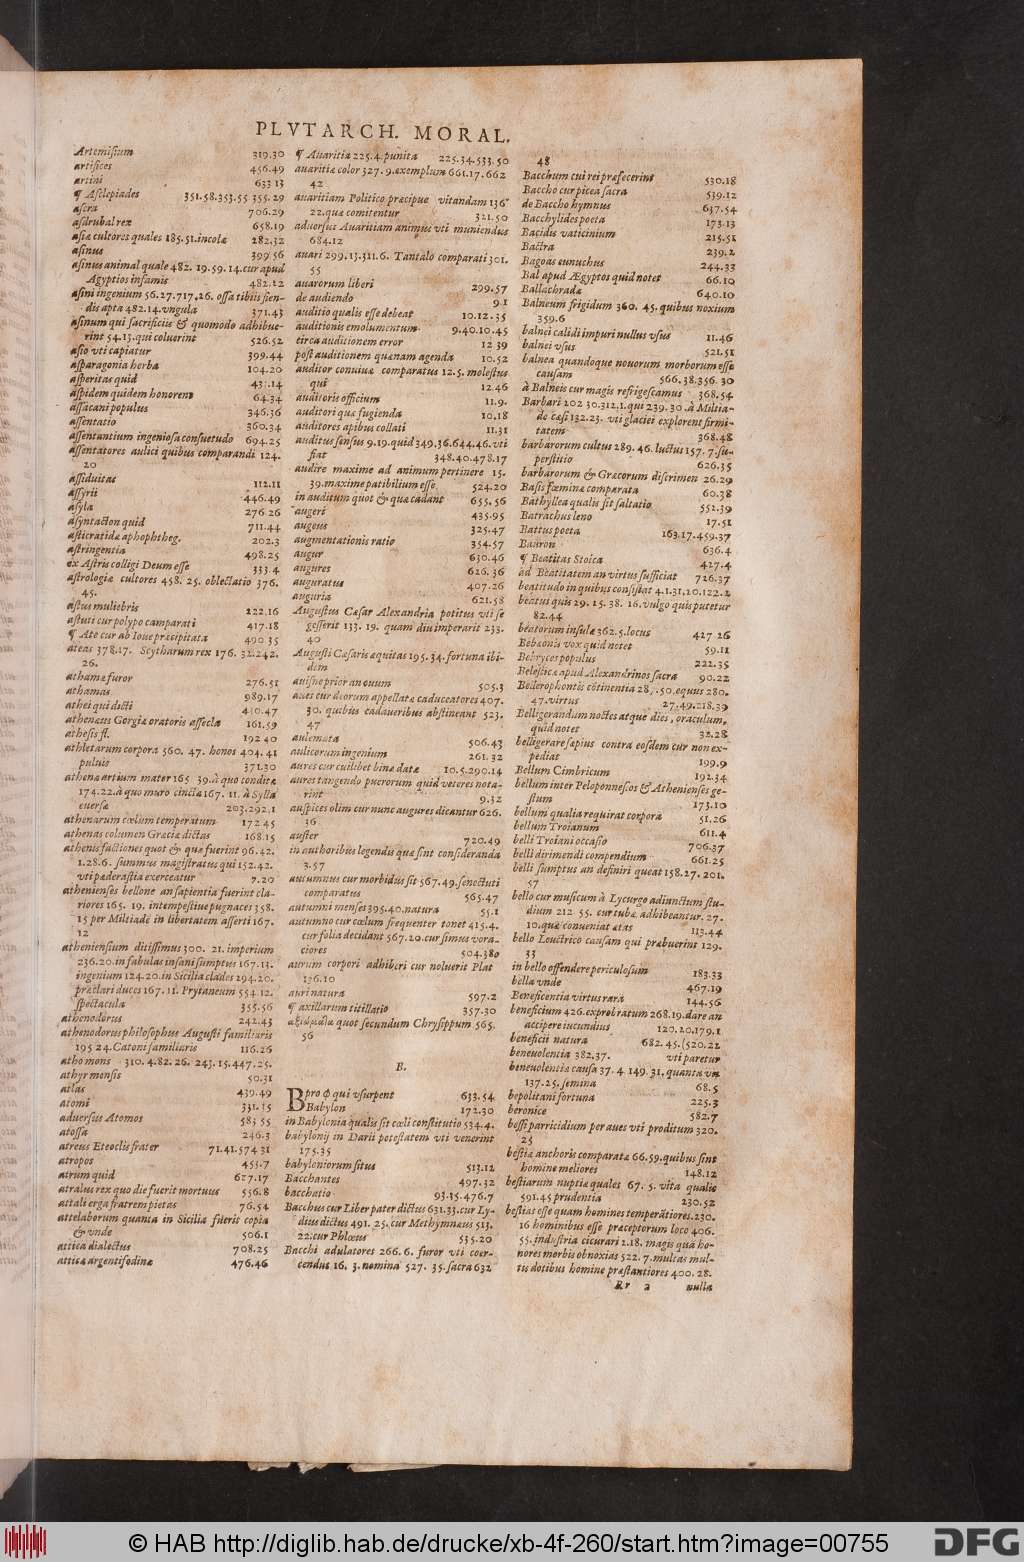 PLVTARCH. MORAL.
Artemisium 319.30
artifices 456.49
artini 633 13
¶ Asclepiades 351.58.353.55 355.29
ascra 706.29
asdrubal rex 658.19
asiæ cultores quales 185.51.incolæ 282.32
asinus 399 56
asinus animal quale 482. 19.59.14.cur apud
Ægyptios infamis 482.12
asini ingenium 56.27.717.26. ossa tibiis fien-
dis apta 482.14.vngula 371.43
asinum qui sacrificiis & quomodo adhibue-
rint 54.13.qui coluerint 526.52
asio vti capiatur 399.44
asparagonia herba 104.20
asperitas quid 431.14
aspidem quidem honorent 64.34
assacani populus 346.36
assentatio 360.34
assentantium ingeniosa consuetudo 694.25
assentatores aulici quibus comparandi 124.
20
assiduitas 112.11
assyrii 446.49
asyla 276 26
asyntacton quid 711.44
asticratidæ aphophtheg. 202.3
astringentia 498.25
ex Astris colligi Deum esse 333.4
astrologiæ cultores 458. 25. oblectatio 376.
45.
astus muliebris 122.16
astuti cur polypo camparati 417.18
¶ Ate cur ab Ioue præcipitata 490 35
ateas 378.17. Scytharum rex 176. 32.242.
26.
athamæ furor 276.51
athamas 989.17
athei qui dicti 410.47
athenæus Gorgiæ oratoris assecla 161.59
athesis fl. 192 40
athletarum corpora 560. 47. honos 404.41
puluis 371.30
athenæ artium mater 165 39.à quo conditæ
174.22.à quo muro cinctæ 167. 11. à Sylla
euersæ 203.292.1
athenarum cœlum temperatum 172 45
athenas columen Græciæ dictas 168.15
athenis factiones quot & quæ fuerint 96.42.
1.28.6. summus magistratus qui 152.42.
vti pæderastia exerceatur 7.20
athenienses bellone an sapientia fuerint cla-
riores 165. 19. intempestiue pugnaces 358.
15 per Miltiadē in libertatem asserti 167.
12
atheniensium ditissimus 300. 21. imperium
236.20.in fabulas insani sumptus 167.13.
ingenium 124.20.in Sicilia clades 194.20.
præclari duces 167.11. Prytaneum 554 12.
spectacula 355.56
athenodorus 242.43
athenodorus philosophus Augusti familiaris
195 24.Catoni familiaris 116.26
atho mons 310. 4.82. 26. 243.15.447.25.
athyr mensis 50.31
atlas 439.49
atomi 331.15
aduersus Atomos 583 55
atossa 246.3
atreus Eteoclis frater 71.41.574 31
atropos 453.7
atrum quid 627.17
attalus rex quo die fuerit mortuus 556.8
attali erga fratrem pietas 76.54
attelaborum quanta in Sicilia fuerit copia
& vnde 506.1
attica dialectus 708.25
atticæ argentifodinæ 476.46
¶ Auaritia 225.4.punita 225.34.533.50
auaritiæ color 327. 9.exemplum 661.17.662
42
auaritiam Politico præcipue vitandam 136
22.quæ comitentur 321.50
aduersus Auaritiam animus vti muniendus
684.12
auari 299.13.311.6. Tantalo comparati 301.
55
auarorum liberi 299.57
de audiendo 9.1
auditio qualis esse debeat 10.12.35
auditionis emolumentum 9.40.10.45
circa auditionem error 12 39
post auditionem quænam agenda 10.52
auditor conuiuæ comparatus 12.5. molestus
qui 12 46
auditoris officium 11.9.
auditori quæ fugienda 10.18
auditores apibus collati 11.31
auditus sensus 9.19.quid 349.36.644.46.vti
fiat 348.40.478.17
audire maxime ad animum pertinere 15.
39.maxime patibilium esse 524.20
in auditum quot & quæ cadant 655.56
augeri 435.95
augeus 325.47
augmentationis ratio 354.57
augur 630.46
augures 626.36
auguratus 407.26
auguria 621.58
Augustus Cæsar Alexandria potitus vti se
gesserit 133. 19. quam diu imperarit 233.
40
Augusti Cæsaris æquitas 195.34.fortuna ibi-
dem
auisne prior an ouum 505.3
aues cur deorum appellatæ caduceatores 407.
30. quibus cadaueribus abstineant 523.
47
aulemata 506.43
aulicorum ingenium 261.32
aures cur cuilibet binæ datæ 10.5.290.14
aures tangendo puerorum quid veteres nota-
rint 9.32
auspices olim cur nunc augures dicantur 626.
16
auster 720.49
in authoribus legendis quæ sint consideranda
3.57
autumnus cur morbidus sit 567.49.senectuti
comparatus 565.47
autumni menses 395.40.natura 55.1
autumno cur cœlum frequenter tonet 415.4.
cur folia decidant 567.20.cur simus vora-
ciores 504.380
aurum corpori adhiberi cur noluerit Plat
136.10
auri natura 597.2
¶ axillarum titillatio 357.30
ἀξιώματα quot secundum Chrysippum 565.
56
B.
B pro φ qui vsurpent 633.54
Babylon 172.30
in Babylonia qualis sit cœli constitutio 534.4.
babylonij in Darii potestatem vti venerint
175.35
babyloniorum situs 513.12
Bacchantes 497.32
bacchatio 93.15.476.7
Bacchus cur Liber pater dictus 631.33.cur Ly-
dius dictus 491. 25.cur Methymnæus 513.
22.cur Phlœus 535.20
Bacchi adulatores 266. 6. furor vti coer-
cendus 16. 3.nomina 527. 35.sacra 632
48
Bacchum cui rei præfecerint 530.18
Baccho cur picea sacra 539.12
de Baccho hymnus 637.54
Bacchylides poeta 173.13
Bacidis vaticinium 215.51
Bactra 239.2
Bagoas eunuchus 244.33
Bal apud Ægyptos quid notet 66.10
Ballachradæ 640.10
Balneum frigidum 360. 45.quibus noxium
359.6
balnei calidi impuri nullus vsus 11.46
balnei vsus 521.51
balnea quandoque nouorum morborum esse
causam 566.38.356.30
à Balneis cur magis refrigescamus 368.54
Barbari 202 30.312.1.qui 239.30.à Miltia-
de cæsi 132.23. vti glaciei explorent firmi-
tatem 368.48
barbarorum cultus 289. 46.luctus 157. 7.su-
perstitio 626.35
barbarorum & Græcorum discrimen 26.29
Basis fœminæ comparata 60.38
Bathyllea qualis sit saltatio 551.39
Batrachus leno 17.51
Battus poeta 163.17.459.37
Bauron 636.4
¶ Beatitas Stoica 427.4
ad Beatitatem an virtus sufficiat 726.37
beatitudo in quibus consistat 4.1.31.10.122.2
beatus quis 29. 15. 38. 16.vulgo quis putetur
82.44
beatorum insulæ 362.5.locus 427 26
Bebæonis vox quid notet 59.11
Bebryces populus 222.35
Belesticæ apud Alexandrinos sacra 90.22
Bellerophontis cōtinentia 28. .50.equus 280.
47.virtus 27.49.218.39
Belligerandum noctes atque dies, oraculum,
quid notet 32.28
belligerare sæpius contra eosdem cur non ex-
pediat 199.9
Bellum Cimbricum 192.34
bellum inter Peloponnesios & Athenienses ge-
stum 173.10
bellum qualia requirat corpora 51.26
bellum Troianum 611.4
belli Troiani occasio 706.37
belli dirimendi compendium 661.25
belli sumptus an definiri queat 158.27. 201.
57
bello cur musicum à Lycurgo adiunctum stu-
dium 212 55. cur tubæ adhibeantur. 27.
10.quæ conueniat ætas 113.44
bello Leuctrico causam qui præbuerint 129.
33
in bello offendere periculosum 183.33
bella vnde 467.19
Beneficentia virtus rara 144.56
beneficium 426.exprobratum 268.19.dare an
accipere iucundius 120.20.179.1
beneficii natura 682.45.(520.21
beneuolentia 382.37. vti paretur
beneuolentiæ causa 37. 4 149.31.quanta vn
137.25.semina 68.5
bepolitani fortuna 225.3
beronice 582.7
bessi parricidium per aues vti proditum 320.
25
bestiæ anchoris comparatæ 66.59.quibus sint
homine meliores 148.12
bestiarum nuptiæ quales 67. 5. vita qualis
591.45 prudentia 230.52
bestias esse quam homines temperātiores.230.
16 hominibus esse præceptorum loco 406.
55.industria cicurari 2.18. magis quā ho-
nores morbis obnoxias 522. 7.multas mul-
tis dotibus homine præstantiores 400. 28.
Rr 2 nulla
© HAB http://diglib.hab.de/drucke/xb-4f-260/start.htm?image=00755
DFG